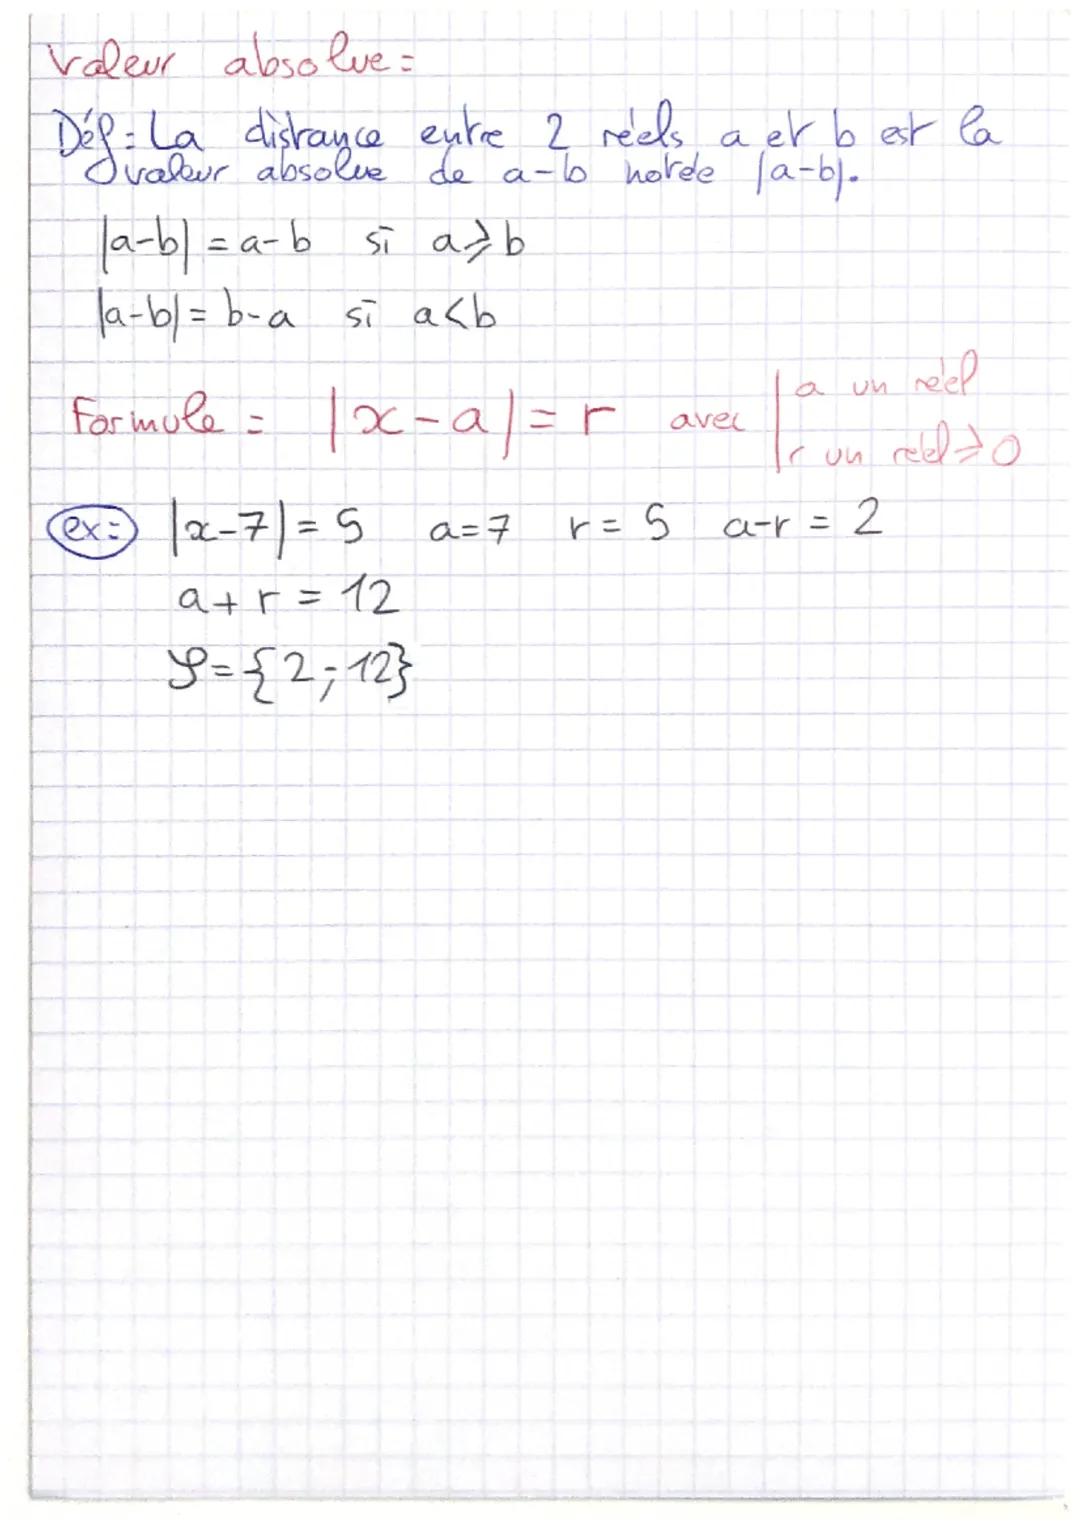 Valeur absolue :
Déf : La distance entre 2 réels a et b est la
valeur absolue de a-b notée |a-b|.
|a-b| = a-b si a⩾b
|a-b| = b-a si a<b
Formule : |x-a| = r avec | a un réel
| r un réel ⩾ 0
ex : |x-7| = 5 a=7 r=5 a-r = 2
a+r = 12
𝒮 = {2 ; 12}